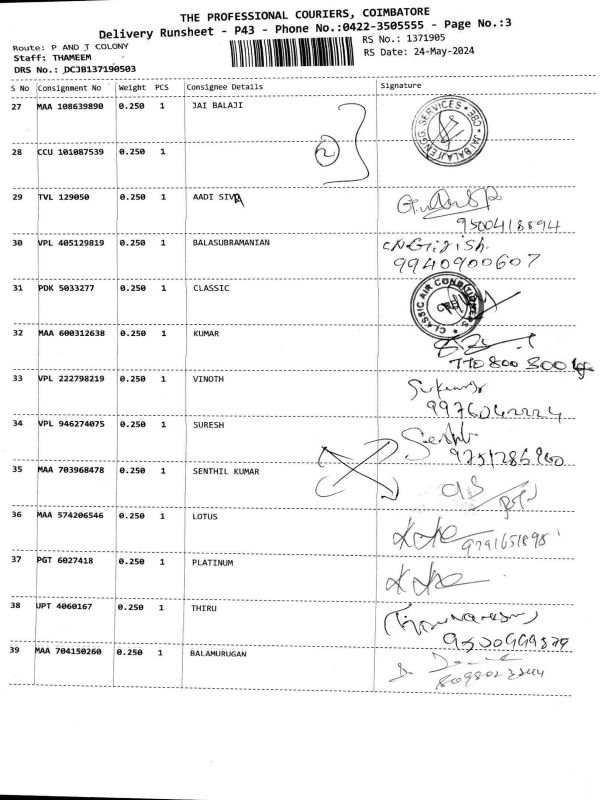 THE PROFESSIONAL COURIERS, COIMBATORE
Delivery Runsheet - P43 - Phone No.:0422-3505555 - Page No.:3
Route: P AND T COLONY
RS No.: 1371905
Staff: THAMEEM
RS Date: 24-May-2024
DRS No.: DCJB137190503
S No Consignment No Weight PCS Consignee Details Signature
27 MAA 108639890 0.250 1 JAI BALAJI
JAI BALAJI ENGG. SERVICES CBE
28 CCU 101087539 0.250 1
2
29 TVL 129050 0.250 1 AADI SIVA
9500418894
30 VPL 405129819 0.250 1 BALASUBRAMANIAN
9940900607
31 PDK 5033277 0.250 1 CLASSIC
CLASSIC AIR CONDITIONERS
32 MAA 600312638 0.250 1 KUMAR
33 VPL 222798219 0.250 1 VINOTH
9976042224
34 VPL 946274075 0.250 1 SURESH
35 MAA 703968478 0.250 1 SENTHIL KUMAR
36 MAA 574206546 0.250 1 LOTUS
9791651898
37 PGT 6027418 0.250 1 PLATINUM
38 UPT 4060167 0.250 1 THIRU
39 MAA 704150260 0.250 1 BALAMURUGAN